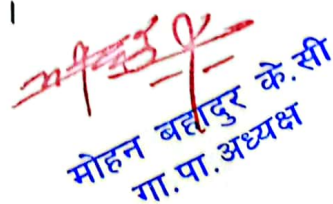 ।
मोहन बहादुर के.सी
गा.पा.अध्यक्ष